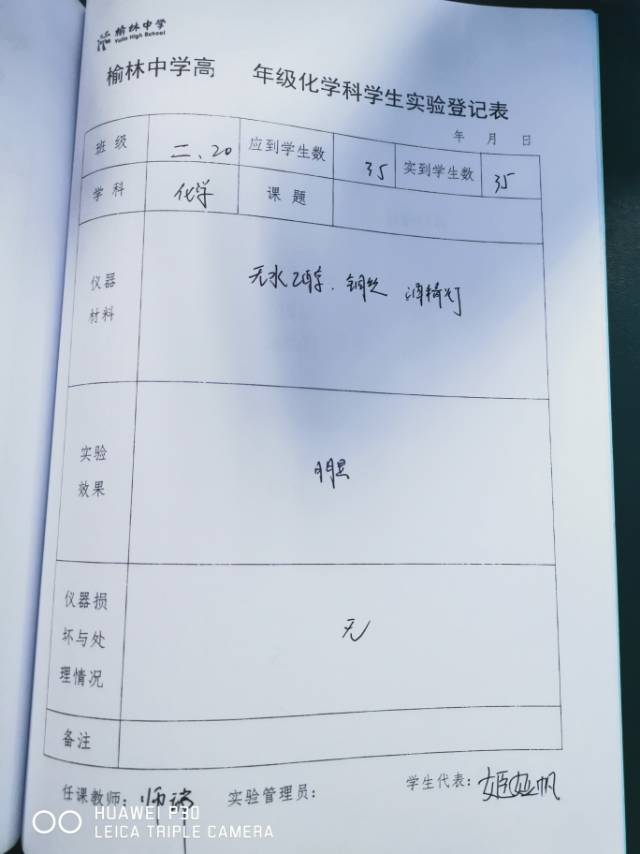 榆林中学
Yulin High School
榆林中学高 年级化学科学生实验登记表
年 月 日
班 级 二、20 应到学生数 35 实到学生数 35
学 科 化学 课 题
仪器
材料
无水乙醇、铜丝 酒精灯
实验
效果
明显
仪器损
坏与处
理情况
无
备注
任课教师: 师 实验管理员: 学生代表: 姬 帆
HUAWEI P30
LEICA TRIPLE CAMERA